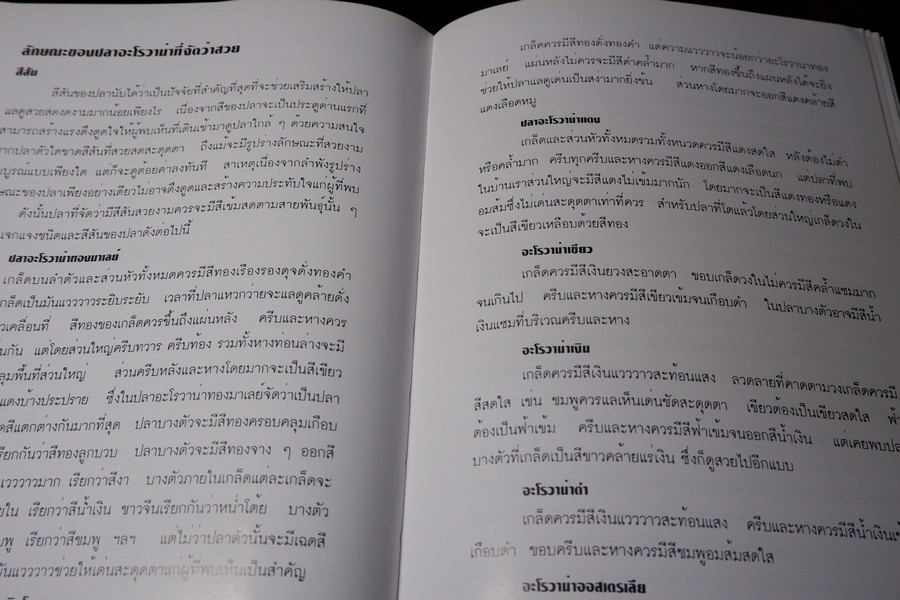 ลักษณะของปลาอะโรวาน่าที่จัดว่าสวย
สีสัน
สีสันของปลานับได้ว่าเป็นปัจจัยที่สำคัญที่สุดที่จะช่วยเสริมสร้างให้ปลา
แลดูสวยสดงดงามมากน้อยเพียงไร เนื่องจากสีของปลาจะเป็นประตูด่านแรกที่
สามารถสร้างแรงดึงดูดใจให้ผู้พบเห็นที่เดินเข้ามาดูปลาใกล้ ๆ ด้วยความสนใจ
ปลาตัวใดขาดสีสันที่สวยสดสะดุดตา ถึงแม้จะมีรูปร่างลักษณะที่สวยงาม
บูรณ์แบบเพียงใด แต่ก็จะดูด้อยค่าลงทันที สาเหตุเนื่องจากลำพังรูปร่าง
ษณะของปลาเพียงอย่างเดียวไม่อาจดึงดูดและสร้างความประทับใจแก่ผู้ที่พบ
ดังนั้นปลาที่จัดว่ามีสีสันสวยงามควรจะมีสีเข้มสดตามสายพันธุ์นั้น ๆ
แจกแจงชนิดและสีสันของปลาดังต่อไปนี้
ปลาอะโรวาน่าทองมาเลย์
เกล็ดบนลำตัวและส่วนหัวทั้งหมดควรมีสีทองเรืองรองดุจดั่งทองคำ
เกล็ดเป็นมันแวววาวระยิบระยับ เวลาที่ปลาแหวกว่ายจะแลดูคล้ายดั่ง
เคลื่อนที่ สีทองของเกล็ดควรขึ้นถึงแผ่นหลัง ครีบและหางควร
กัน แต่โดยส่วนใหญ่ครีบทวาร ครีบท้อง รวมทั้งหางท่อนล่างจะมี
ลุมพื้นที่ส่วนใหญ่ ส่วนครีบหลังและหางโดยมากจะเป็นสีเขียว
แดงบ้างประปราย ซึ่งในปลาอะโรวาน่าทองมาเลย์จัดว่าเป็นปลา
สีแตกต่างกันมากที่สุด ปลาบางตัวจะมีสีทองครอบคลุมเกือบ
เรียกกันว่าสีทองลูกบวบ ปลาบางตัวจะมีสีทองจาง ๆ ออกสี
แวววาวมาก เรียกกว่าสีงา บางตัวภายในเกล็ดแต่ละเกล็ดจะ
ใน เรียกว่าสีน้ำเงิน ชาวจีนเรียกกันว่าหน่ำโต้ย บางตัว
พู เรียกว่าสีชมพู ฯลฯ แต่ไม่ว่าปลาตัวนั้นจะมีเฉดสี
มันแวววาวช่วยให้เด่นสะดุดตาแก่ผู้ที่พบเห็นเป็นสำคัญ
เกล็ดควรมีสีทองดั่งทองคำ แต่ความแวววาวจะน้อยกว่าอะโรวาน่าทอง
มาเลย์ แผนหลังไม่ควรจะมีสีดำคล้ำมาก หากสีทองขึ้นถึงแผนหลังได้จะยิ่ง
ช่วยให้ปลาแลดูเด่นเป็นสง่ามากยิ่งขึ้น ส่วนหางโดยมากจะออกสีแดงคล้ายสี
แดงเลือดหมู
ปลาอะโรวาน่าแดง
เกล็ดและส่วนหัวทั้งหมดรวมทั้งหนวดควรมีสีแดงสดใส หลังต้องไม่ดำ
หรือคล้ำมาก ครีบทุกครีบและหางควรมีสีแดงออกสีแดงเลือดนก แต่ปลาที่พบ
ในบ้านเราส่วนใหญ่จะมีสีแดงไม่เข้มมากนัก โดยมากจะเป็นสีแดงทองหรือแดง
อมส้มซึ่งไม่เด่นสะดุดตาเท่าที่ควร สำหรับปลาที่โตแล้วโดยส่วนใหญ่เกล็ดวงใน
จะเป็นสีเขียวเหลือบด้วยสีทอง
อะโรวาน่าเขียว
เกล็ดควรมีสีเงินยวงสะอาดตา ขอบเกล็ดวงในไม่ควรมีสีคล้ำแซมมาก
จนเกินไป ครีบและหางควรมีสีเขียวเข้มจนเกือบดำ ในปลาบางตัวอาจมีสีน้ำ
เงินแซมที่บริเวณครีบและหาง
อะโรวาน่าเงิน
เกล็ดควรมีสีเงินแวววาวสะท้อนแสง ลวดลายที่คาดตามวงเกล็ดควรมี
สีสดใส เช่น ชมพูควรแลเห็นเด่นชัดสะดุดตา เขียวต้องเป็นเขียวสดใส ฟ้า
ต้องเป็นฟ้าเข้ม ครีบและหางควรมีสีฟ้าเข้มจนออกสีน้ำเงิน แต่เคยพบปลา
บางตัวที่เกล็ดเป็นสีขาวคล้ายแร่เงิน ซึ่งก็ดูสวยไปอีกแบบ
อะโรวาน่าดำ
เกล็ดควรมีสีเงินแวววาวสะท้อนแสง ครีบและหางควรมีสีน้ำเงินเข้
เกือบดำ ขอบครีบและหางควรมีสีชมพูอมส้มสดใส
อะโรวาน่าออสเตรเลีย